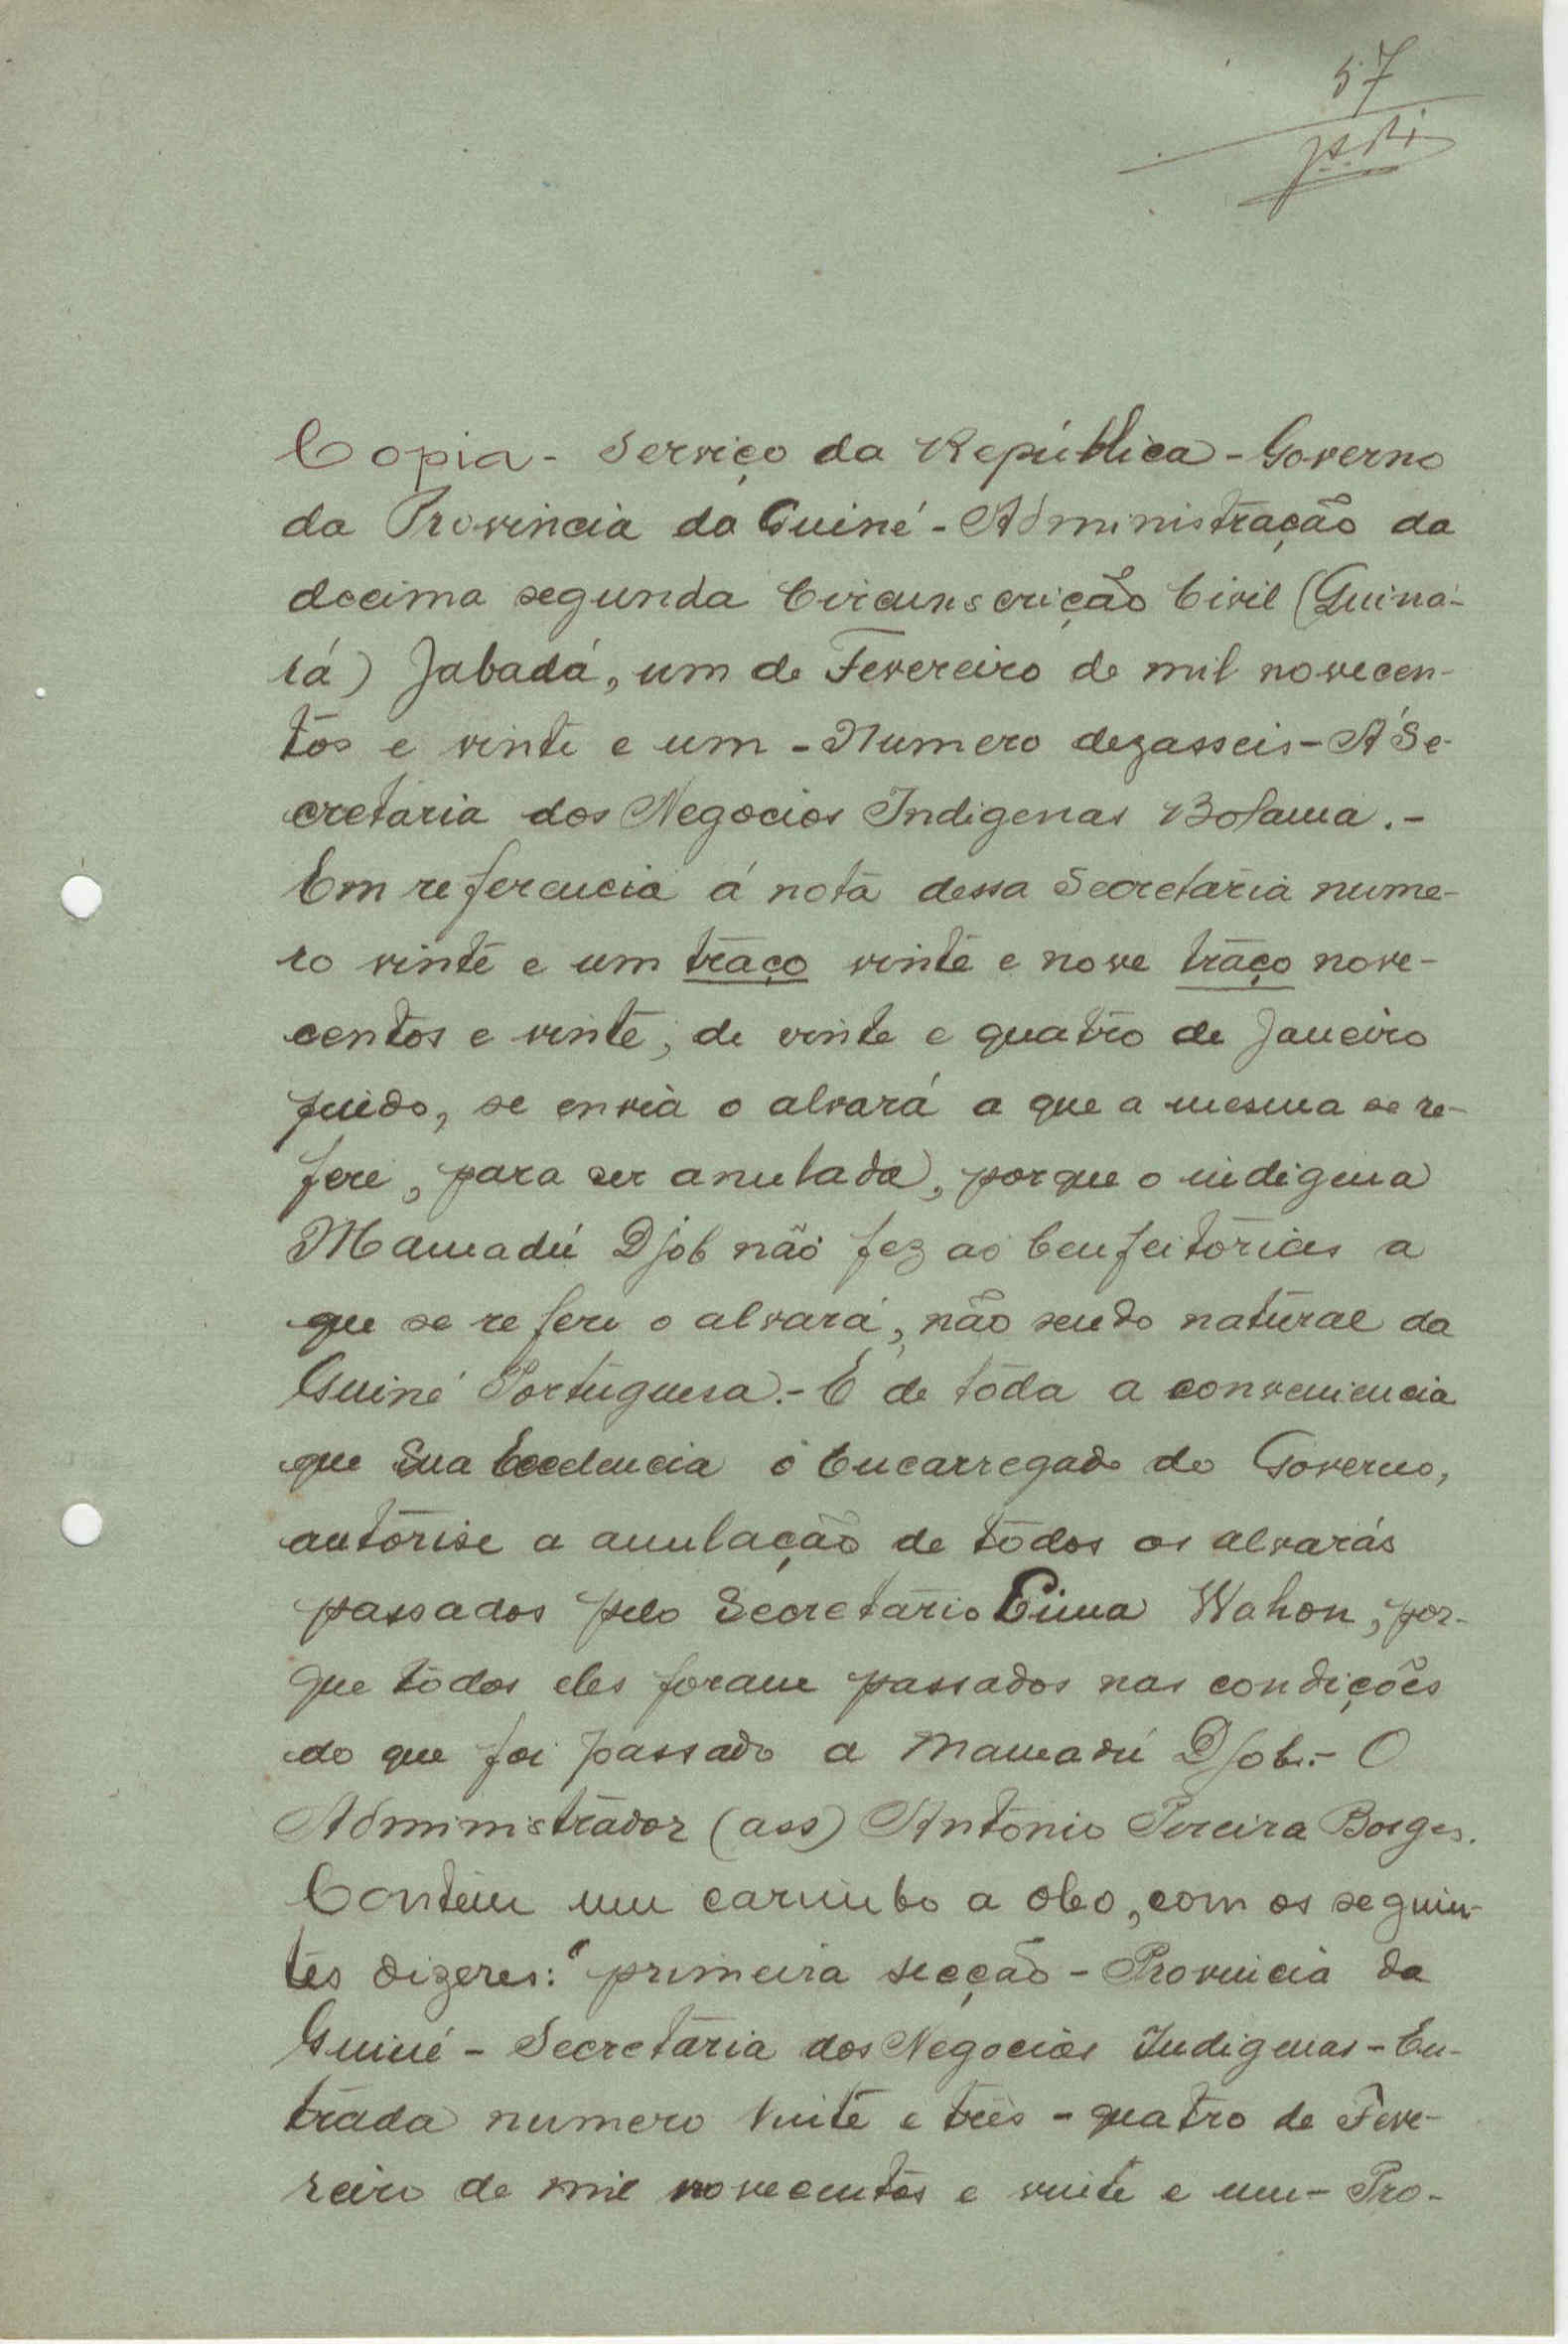 57
Copia - Serviço da República - Governo
da Provincia da Guiné - Administração da
decima segunda Circunscrição Civil (Guina-
rá) Jabadá, um de Fevereiro de mil novecen-
tos e vinte e um - Numero dezasseis - Á Se-
cretaria dos Negocios Indigenas Bolama. -
Em referencia á nota dessa Secretaria nume-
ro vinte e um traço vinte e nove traço nove-
centos e vinte, de vinte e quatro de Janeiro
findo, se envia o alvará a que a mesma se re-
fere, para ser anulado, porque o indigena
Mamadú Djob não fez as bemfeitorias a
que se refere o alvará, não sendo natural da
Guiné Portuguesa. - É de toda a conveniencia
que Sua Excelencia o Encarregado do Governo,
autorise a anulação de todos os alvarás
passados pelo Secretario Wahon, por-
que todos eles foram passados nas condições
do que foi passado a Mamadú Djob. - O
Administrador (ass) Antonio Pereira Borges.
Contem um carimbo a oleo, com os seguin-
tes dizeres: "primeira secção - Provincia da
Guiné - Secretaria dos Negocios Indigenas - En-
trada numero vinte e três - quatro de Feve-
reiro de mil novecentos e vinte e um - Pro-